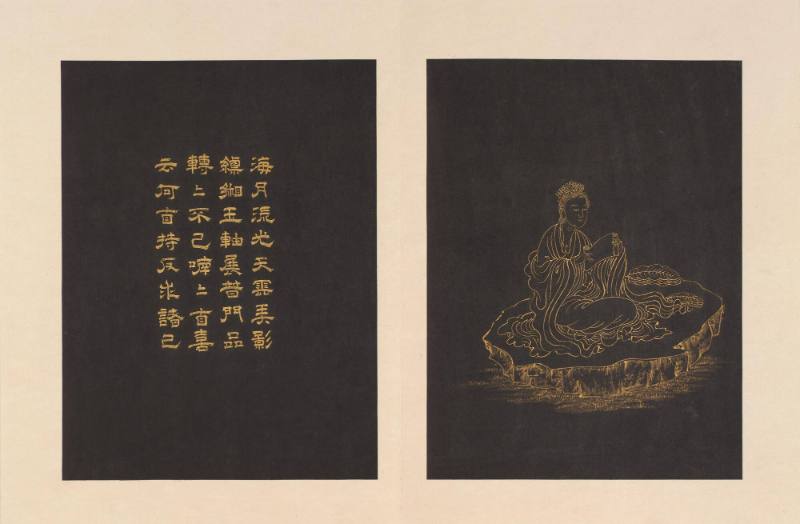 海月流光天雲影
縹緗玉軸展普門品
轉〻不已〻自喜
云何自持反求諸己